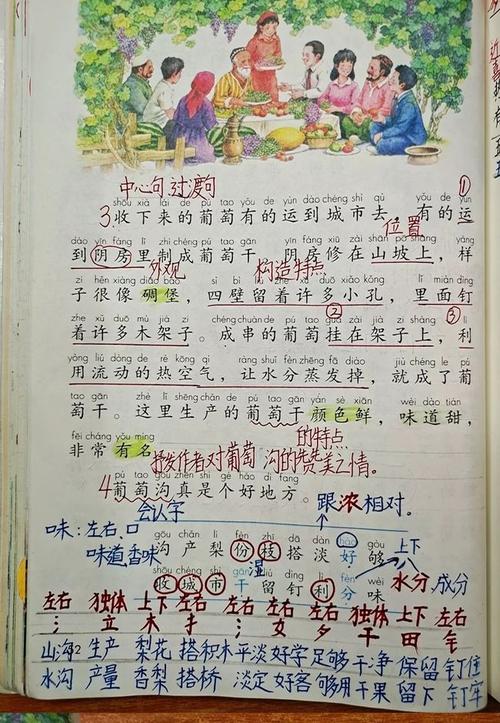 中心句 过渡句 ①
shōu xià lái de pú tao yǒu de yùn dào chéng shì qù yǒu de yùn
3.收下来的葡萄有的运到城市去，有的运
位置
dào yīn fáng lǐ zhì chéng pú tao gān yīn fáng xiū zài shān pō shàng yàng
到阴房里制成葡萄干。阴房修在山坡上，样
外观 构造特点
zi hěn xiàng diāo bǎo sì bì liú zhe xǔ duō xiǎo kǒng lǐ miàn dìng
子很像碉堡，四壁留着许多小孔，里面钉
② ③
zhe xǔ duō mù jià zi chéng chuàn de pú tao guà zài jià zi shàng lì
着许多木架子。成串的葡萄挂在架子上，利
yòng liú dòng de rè kōng qì ràng shuǐ fèn zhēng fā diào jiù chéng le pú
用流动的热空气，让水分蒸发掉，就成了葡
tao gān zhè lǐ shēng chǎn de pú tao gān yán sè xiān wèi dào tián
萄干。这里生产的葡萄干颜色鲜，味道甜，
的特点
fēi cháng yǒu míng
非常有名。
抒发作者对葡萄沟的赞美之情。
pú tao gōu zhēn shì gè hǎo dì fang
4.葡萄沟真是个好地方。
会认字 跟浓相对。
味：左右、口
gōu chǎn lí fèn zhī dā dàn hǎo gòu
沟产梨份枝搭淡好够
味道、香味 湿 上下
shōu chéng shì gān liú dìng lì fēn wèi
收城市干留钉利分味
水分、成分
左右 独体 上下 左右 左右 左右 上下 独体 上下 左右
氵 立 木 扌 氵 女 夕 干 田 钅
山沟 生产 梨花 搭积木 平淡 好学 足够 干净 保留 钉住
水沟 产量 香梨 搭桥 淡定 好客 够用 干果 留下 钉牢